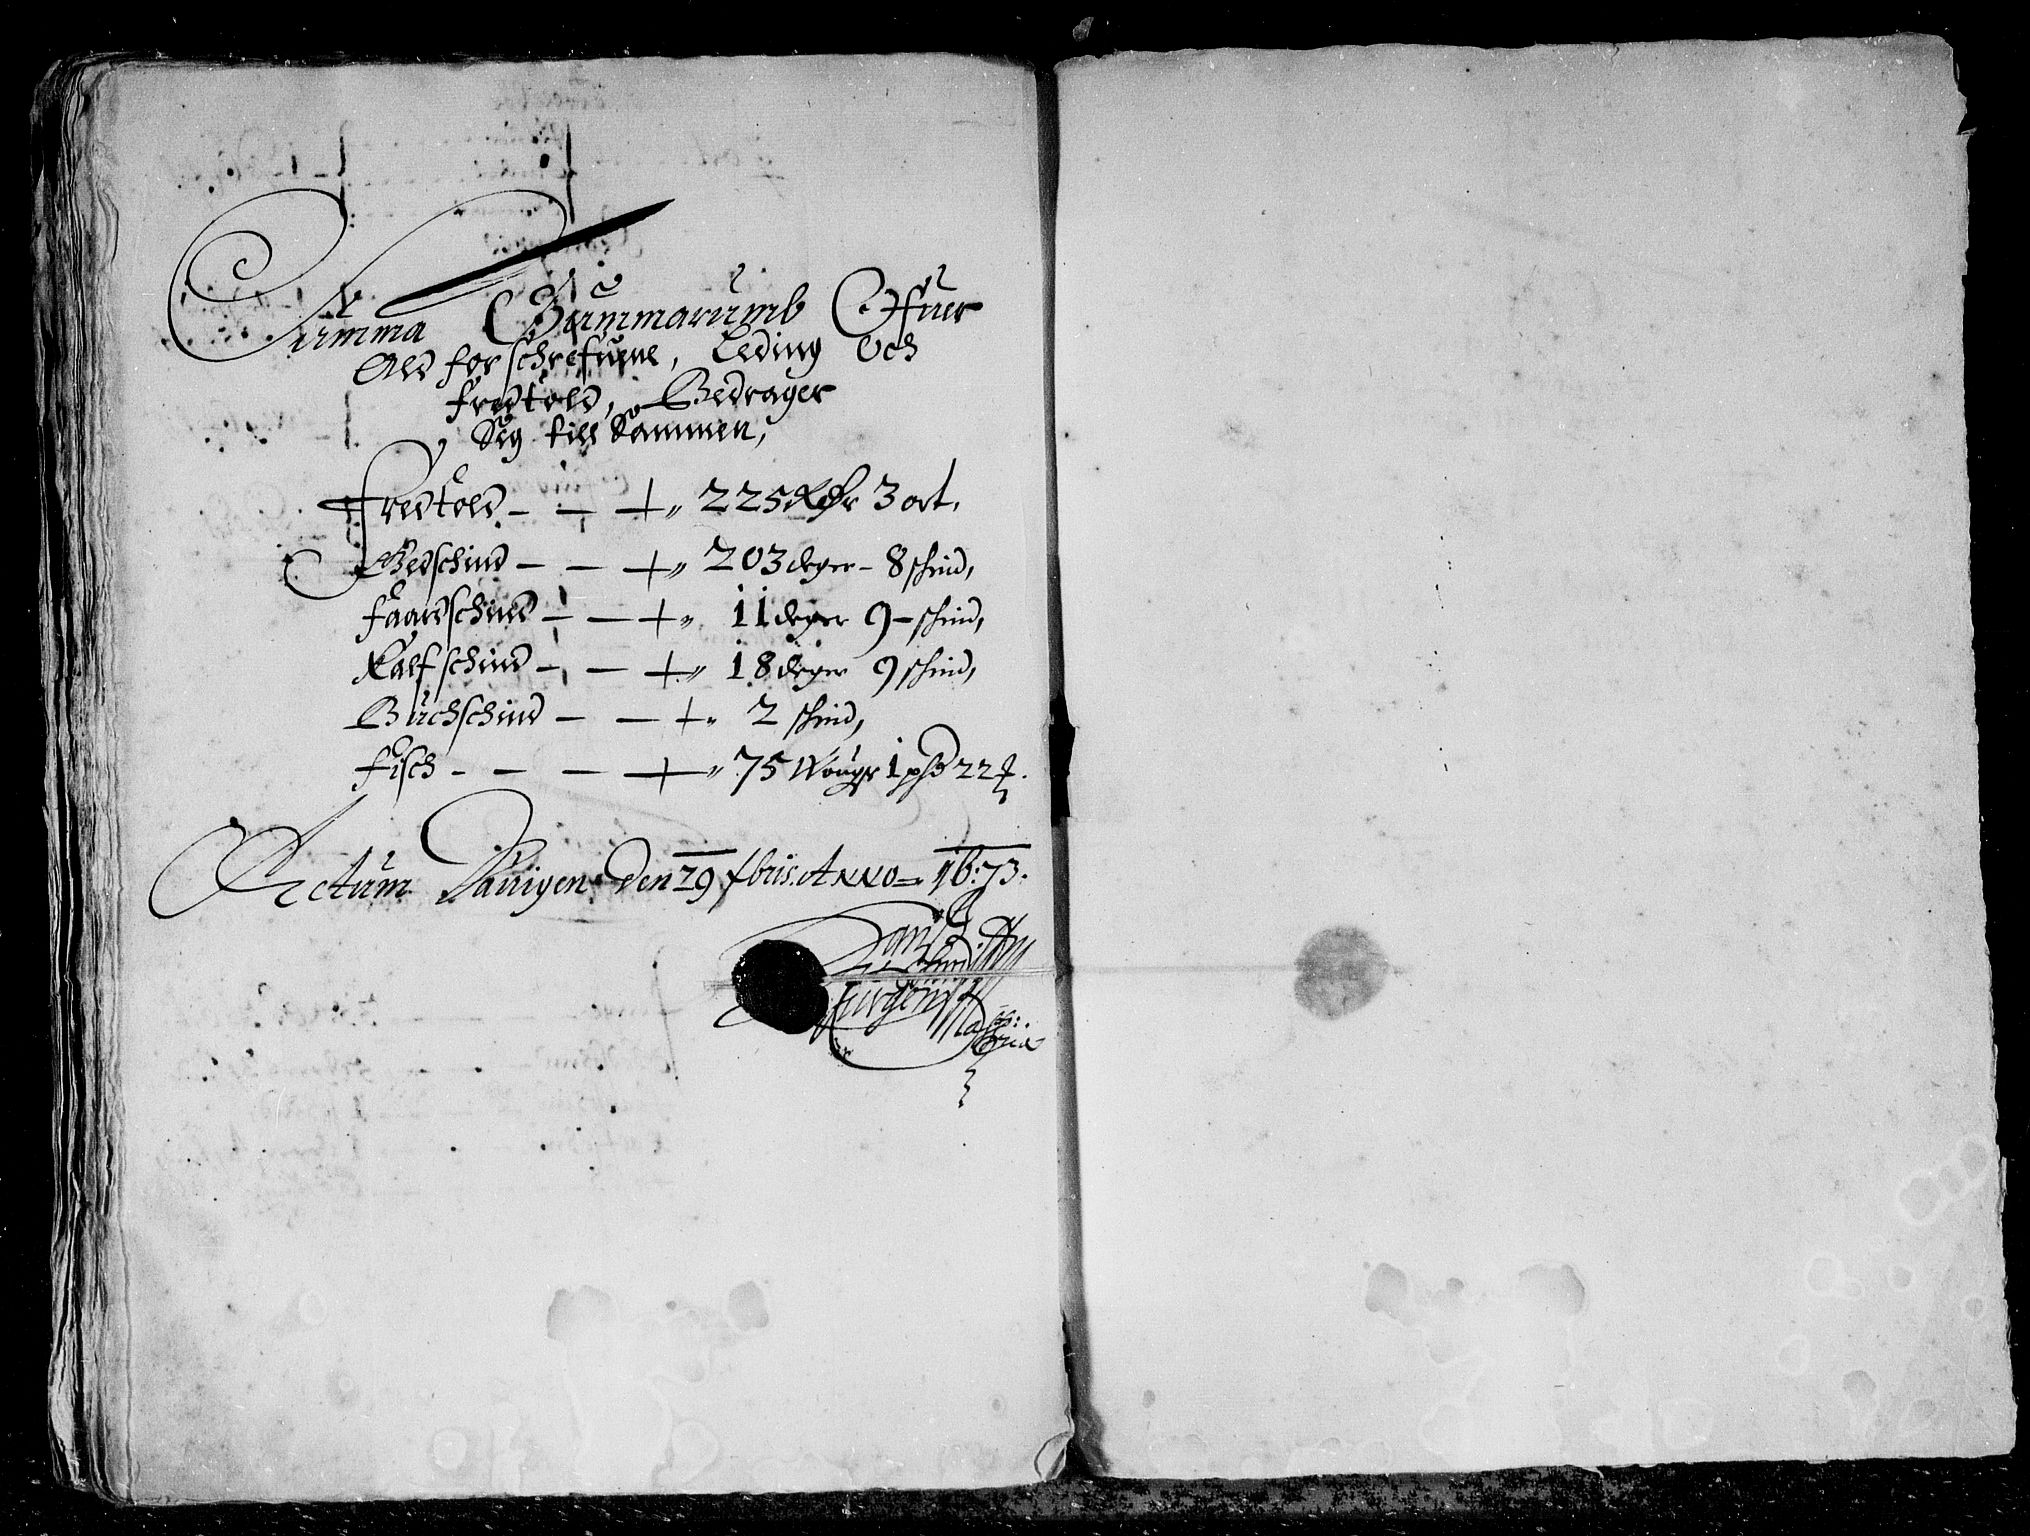 Summa Summarumb Offuer
All forschrefuene, Leding Och
fredtold, Bedrager
Sig till Sammen,
Fredtold - - - 225 Rdr 3 ort.
Gedschind - - - 203 deger - 8 schind,
faareschind - - - 11 deger 9 - schind,
Kalfschind - - - 18 deger 9 schind,
Buchschind - - - 2 schind,
fisch - - - 75 Wouger 1 phd 22
Actum den 29 Anno 1673.